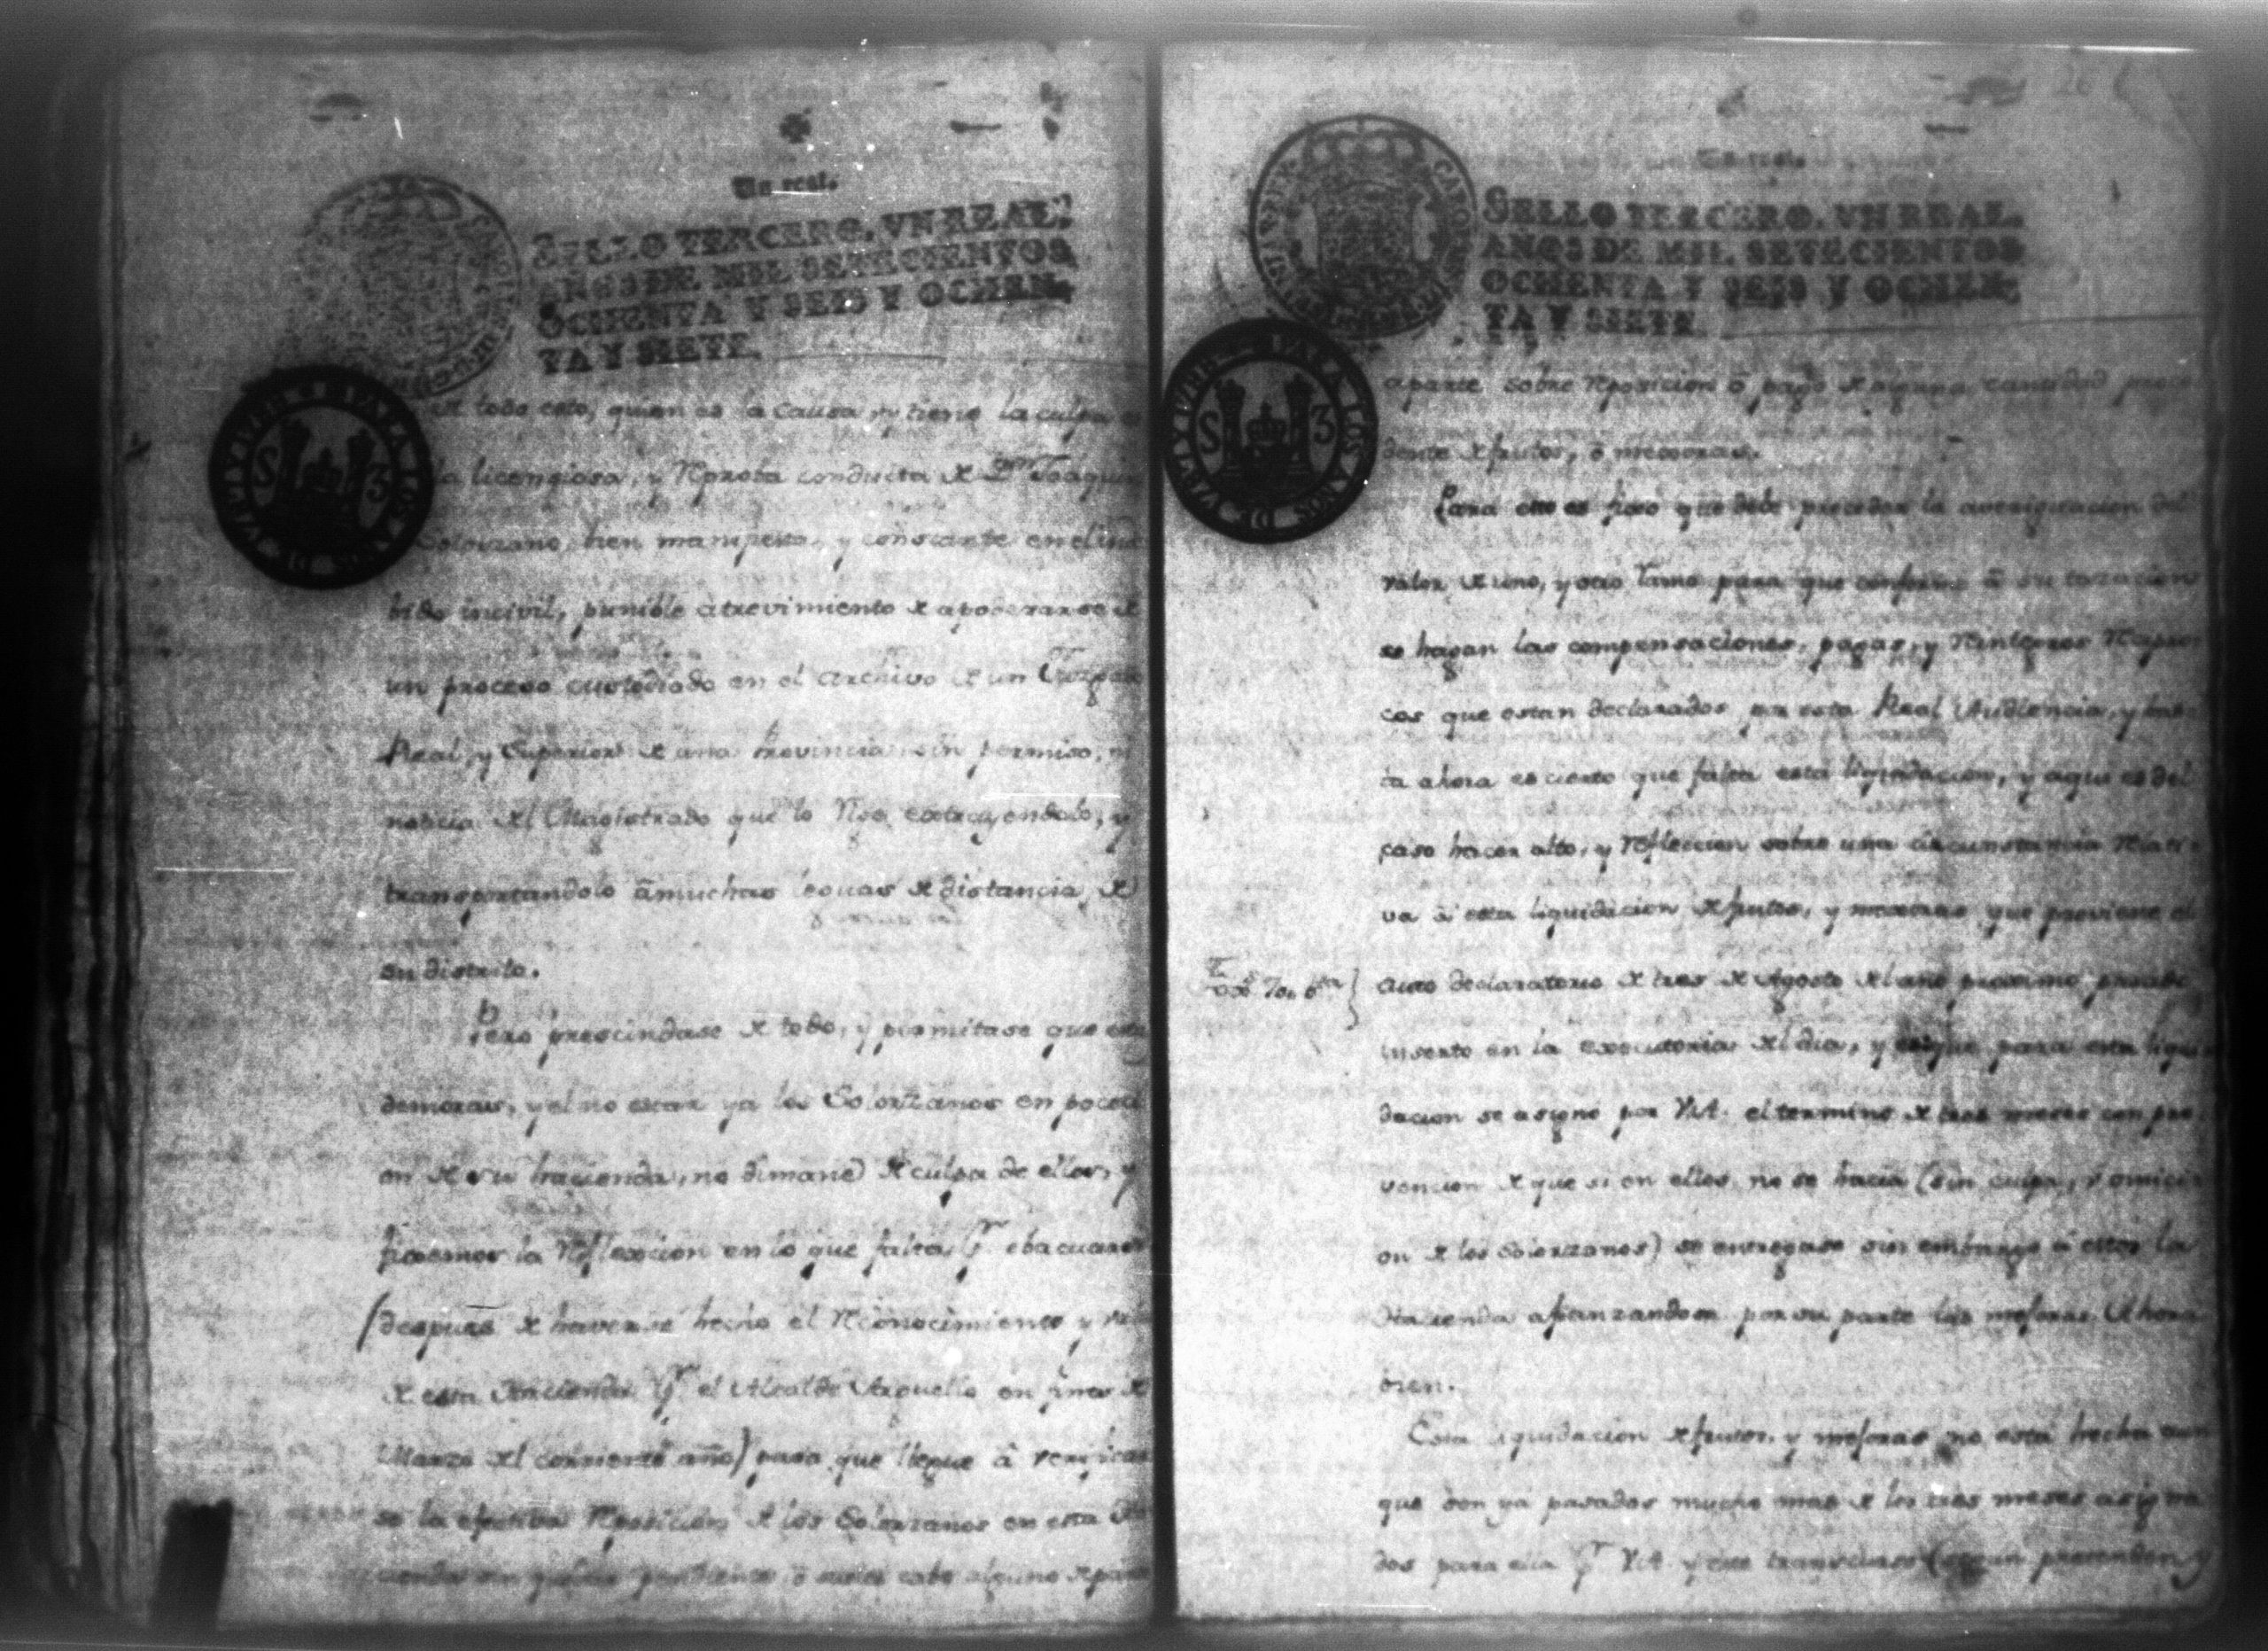 Un real.
SELLO TERCERO, VN REAL,
AÑOS DE MIL SETECIENTOS
OCHENTA Y SEIS Y OCHEN-
TA Y SIETE.
PARA LOS AÑOS DE
S 3
todo esto, quien es la causa, y tiene la culpa
la licenciosa, y Rproba conducta x Dn Joaquin
Solorzano, bien manifiesta, y constante en el
bido incivil, punible atrevimiento x apoderarse x
un proceso custodiado en el archivo x un
Real, y Superior x una Provincia sin permiso, ni
noticia xl Magistrado que lo Rge, extrayendolo, y
transportandolo â muchas leguas x distancia, x
su distrito.
Pero prescindase x todo, y permitase que
demoras, y el no estar ya los Solorzanos en
on x su hacienda, no dimane x culpa de ellos, y
fixemos la Rflexcion en lo que falta pr. ebacuarse
(despues x haverse hecho el Rconocimiento y
x esta Hacienda pr. el Alcalde Arguello en fines x
Marzo xl corriente año) para que llegue â verificar
se la efectiva Rposicion x los Solorzanos en esta
alguno x
Un real.
SELLO TERCERO, VN REAL,
AÑOS DE MIL SETECIENTOS
OCHENTA Y SEIS Y OCHEN-
TA Y SIETE
PARA LOS AÑOS DE
S 3
aparte sobre Rposicion ô pago x alguna cantidad proce
dente x frutos, ô mejoras.
Para esto es fixo que debe preceder la averiguacion del
valor x uno, y otro ramo para que conforme â su tazacion
se hagan las compensaciones, pagas, y Rintegros
cos que estan declarados por esta Real Audiencia, y has
ta ahora es cierto que falta esta liquidacion, y aqui es del
caso hacer alto, y Rfleccion sobre una circunstancia Rlati
va â esta liquidacion x frutos, y mejoras que previene el
auto declaratorio x tres x Agosto xl año proximo pasado
inserto en la executoria xl dia, y es que para esta liqui
dacion se asignó por VA. el termino x tres meses con pre
vencion x que si en ellos no se hacia (sin culpa, y omici
on x los Solorzanos) se entregase sin embargo â estos la
Hacienda afianzandose por su parte las mejoras. Ahora
bien.
Esta liquidacion x frutos, y mejoras no está hecha aun
que son ya pasados mucho mas x los tres meses asigna
dos para ella pr. VA. y este transcurso (segun pretenden y